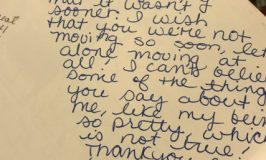 that it wasn't
sooner. I wish
that you we're not
moving so soon, let
alone moving at
all! I can't believe
some of the things
you say about
me, like my being
so pretty, which
is not true!
Thankyou